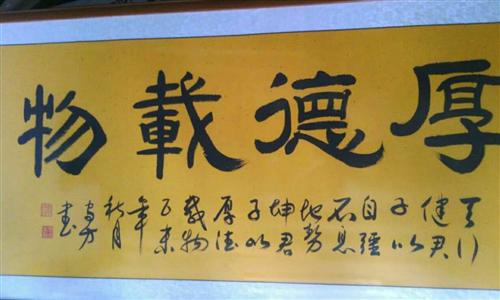 厚德載物
天行
健君
子以
自彊
不息
地勢
坤君
子以
厚德
載物
乙未
年
秋月